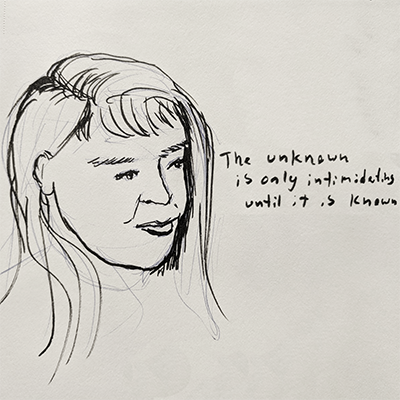 The unknown
is only intimidating
until it is known